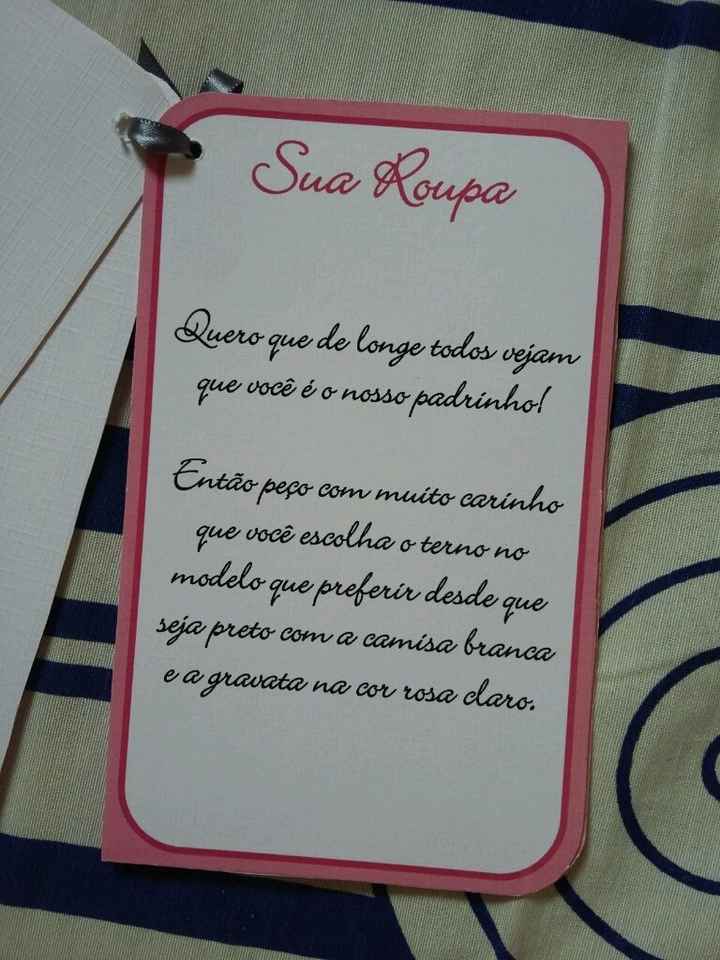 Sua Roupa
Quero que de longe todos vejam
que você é o nosso padrinho!
Então peço com muito carinho
que você escolha o terno no
modelo que preferir desde que
seja preto com a camisa branca
e a gravata na cor rosa claro.